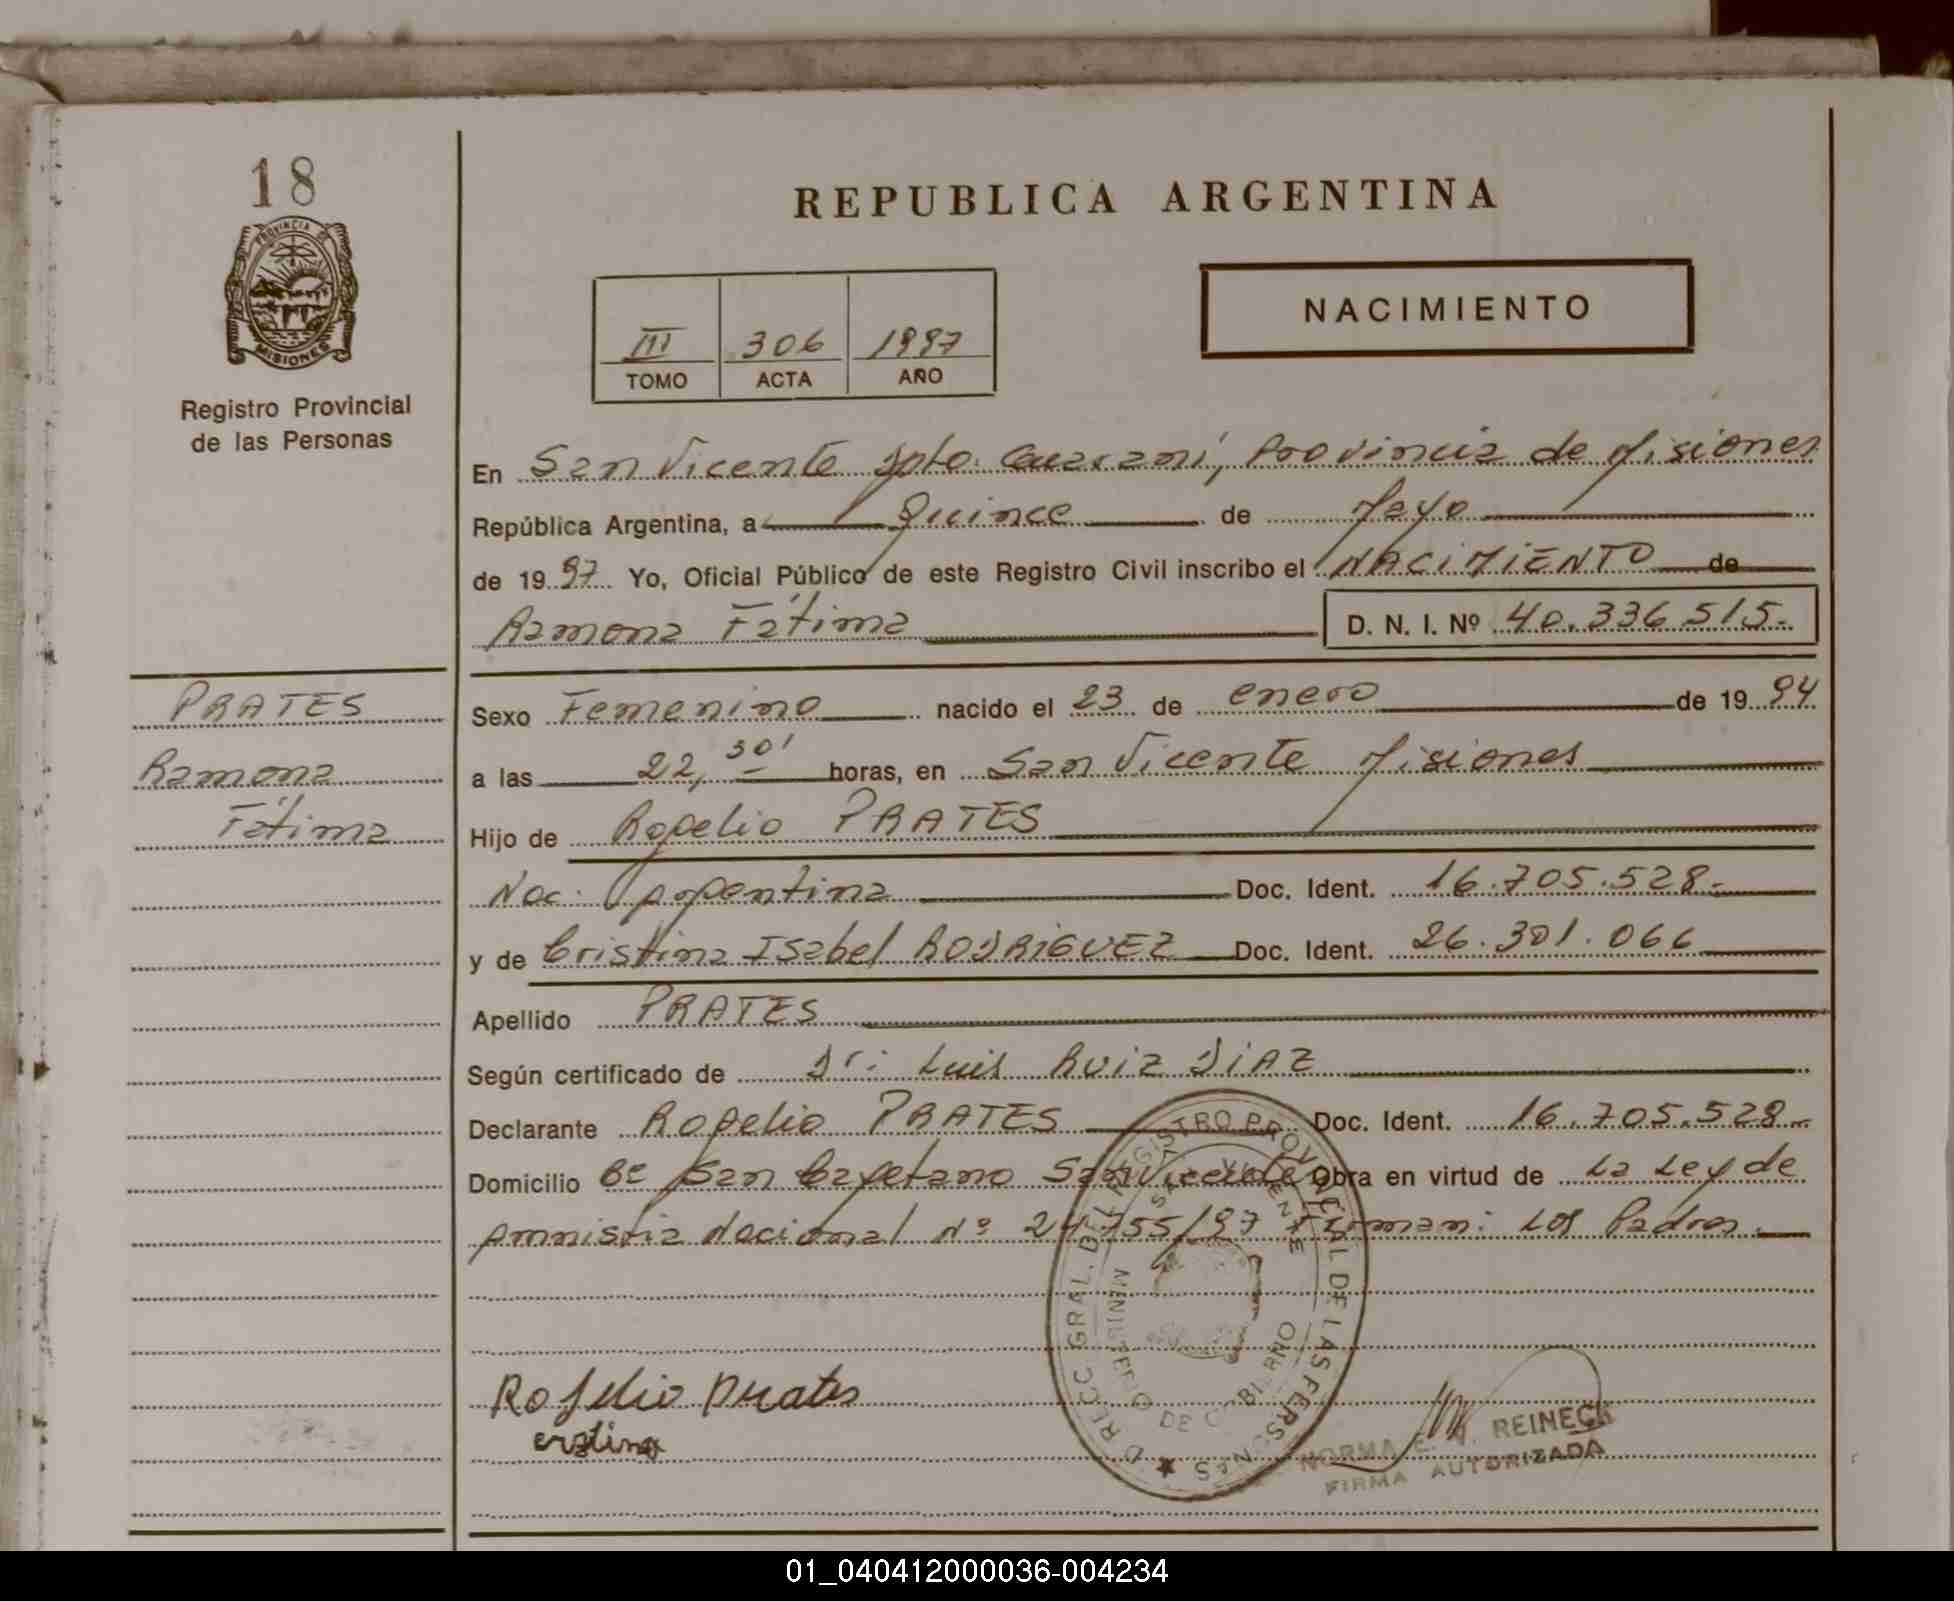 18
PROVINCIA DE
MISIONES
Registro Provincial
de las Personas
REPUBLICA ARGENTINA
NACIMIENTO
III 306 1997
TOMO ACTA AÑO
En San Vicente Dpto. Guaraní, Provincia de Misiones
República Argentina, a Quince de Mayo
de 1997 Yo, Oficial Público de este Registro Civil inscribo el NACIMIENTO de
Ramona Fátima D. N. I. Nº 40.336.515.-
PRATES
Ramona
Fátima
Sexo Femenino nacido el 23 de enero de 1994
a las 22,30' horas, en San Vicente Misiones
Hijo de Rogelio PRATES
Nac. Argentina Doc. Ident. 16.705.528.-
y de Cristina Isabel RODRIGUEZ Doc. Ident. 26.301.066
Apellido PRATES
Según certificado de Dr: Luis Ruiz DIAZ
Declarante Rogelio PRATES Doc. Ident. 16.705.528.-
Domicilio Bº San Cayetano San Vicente Obra en virtud de La Ley de
Amnistia Nacional Nº 24755/97 Firman: Los Padres.-
DIRECC. GRAL. DEL REGISTRO PROVINCIAL DE LAS PERSONAS
SAN VICENTE
MINISTERIO DE GOBIERNO
Rogelio Prates
NORMA E. REINECK
FIRMA AUTORIZADA
01_040412000036-004234